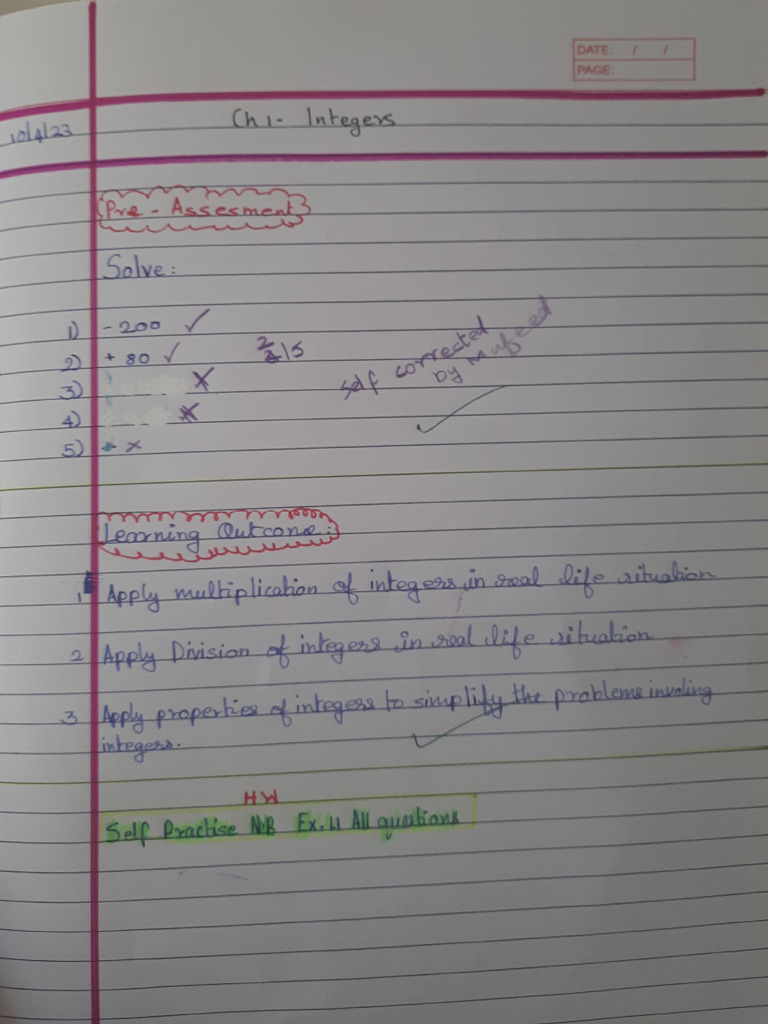 DATE: / /
PAGE:
10/4/23 Ch 1- Integers
Pre - Assesment
Solve:
1) - 200 ✓
2) + 80 ✓ 2/5
3) ×
4) ×
5) ×
Self corrected
by Mufeed
Learning Outcome:
1. Apply multiplication of integers in real life situation
2 Apply Division of integers in real life situation
3 Apply properties of integers to simplify the problems involing
integers.
HW
Self Practise N.B Ex. 1.1 All questions